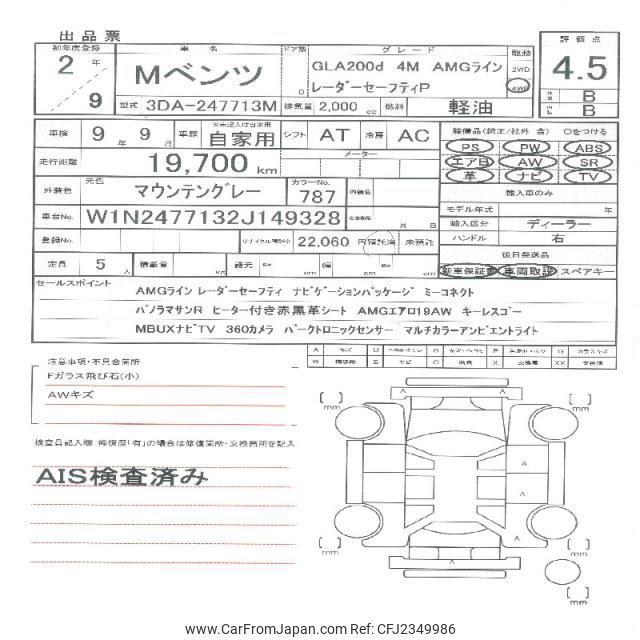 出品票
初年度登録 車名 ドア数 グレード 駆動 評価点
2年 Mベンツ D GLA200d 4M AMGライン 2WD 4.5
9 レーダーセーフティP 4WD B
型式 3DA-247713M 排気量 2,000 cc 燃料 軽油 B
車検 9年 9月 車歴 ※未記入は自家用 自家用 シフト AT 冷房 AC 装備品(純正/社外 含) Oをつける
走行距離 19,700 km メーター PS PW ABS
エアB AW SR
革 ナビ TV
外装色 元色 マウンテングレー カラーNo. 787 内装色 輸入車のみ
モデル年式 年
車台No. W1N2477132J149328 月 日 輸入区分 ディーラー
登録No. リサイクル預託金 22,060 円 預託済 未預託 ハンドル 右
後日発送品
定員 5人 積載量 kg 諸元 cm 幅 cm cm 新車保証書 車両取説 スペアキー
セールスポイント
AMGライン レーダーセーフティ ナビゲーションパッケージ ミーコネクト
パノラマサンR ヒーター付き赤黒革シート AMGエアロ19AW キーレスゴー
MBUXナビTV 360カメラ パークトロニックセンサー マルチカラーアンビエントライト
A キズ U B P G ガラスキズ
W S サビ C 腐食 X XX 交換済
注意事項・不具合箇所
Fガラス飛び石(小)
AWキズ
検査員記入欄:修復歴「有」の場合は修復箇所・交換箇所を記入
AIS検査済み
[ ] mm [ ] mm
A
A
A
A
A
[ ] mm [ ] mm
A
[ ] mm
www.CarFromJapan.com - Ref No. CFJ2349986